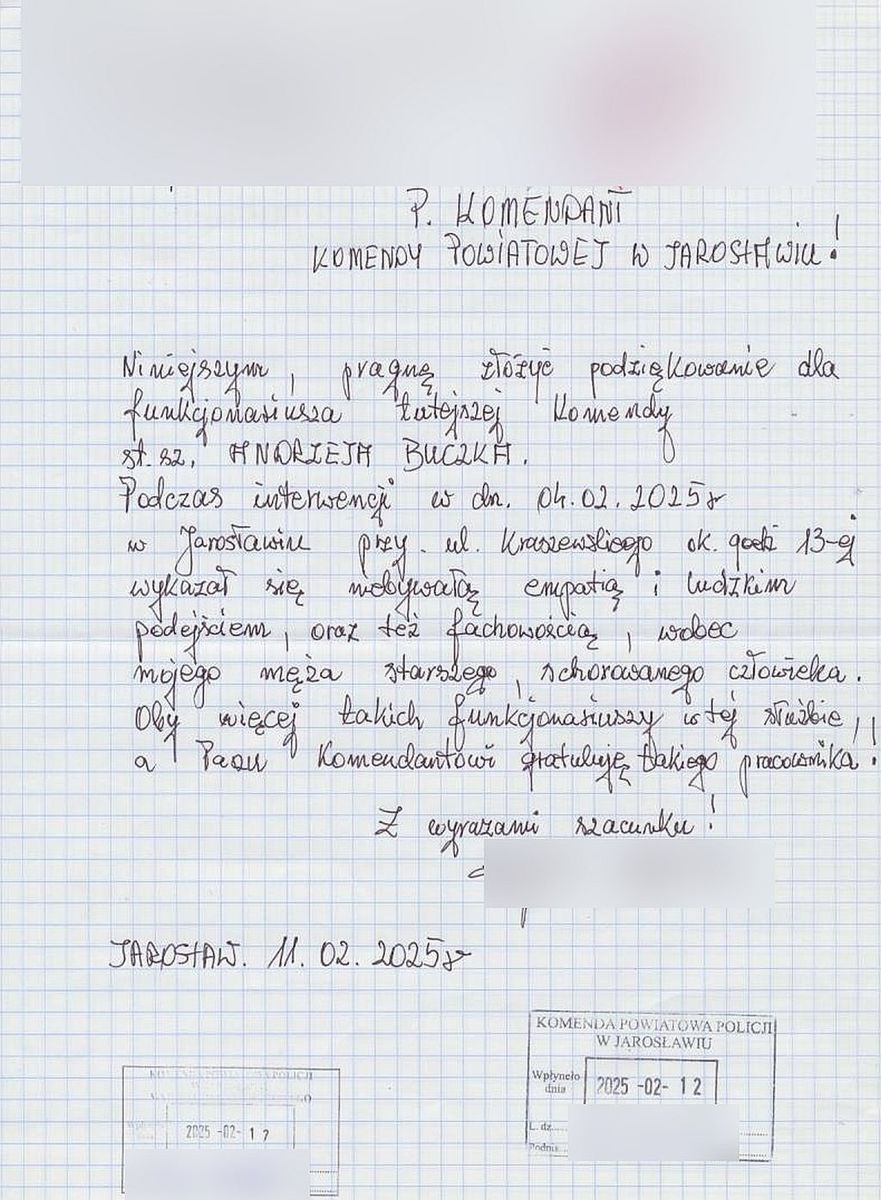 P. KOMENDANT
KOMENDY POWIATOWEJ W JAROSŁAWIU!
Niniejszym, pragnę złożyć podziękowanie dla
funkcjonariusza tutejszej Komendy
st. sz. ANDRZEJA BUCZKA.
Podczas interwencji w dn. 04.02.2025r
w Jarosławiu przy. ul. Kraszewskiego ok. godz 13-ej
wykazał się niebywałą empatią i ludzkim
podejściem, oraz też fachowością, wobec
mojego męża starszego, schorowanego człowieka.
Oby więcej takich funkcjonariuszy w tej służbie,
a Panu Komendantowi gratuluję takiego pracownika!!
Z wyrazami szacunku!
JAROSŁAW. 11.02.2025r
KOMENDA POWIATOWA POLICJI
W JAROSŁAWIU
Wpłynęło
dnia 2025 -02- 12
L. dz.
Podpis
2025 -02- 17